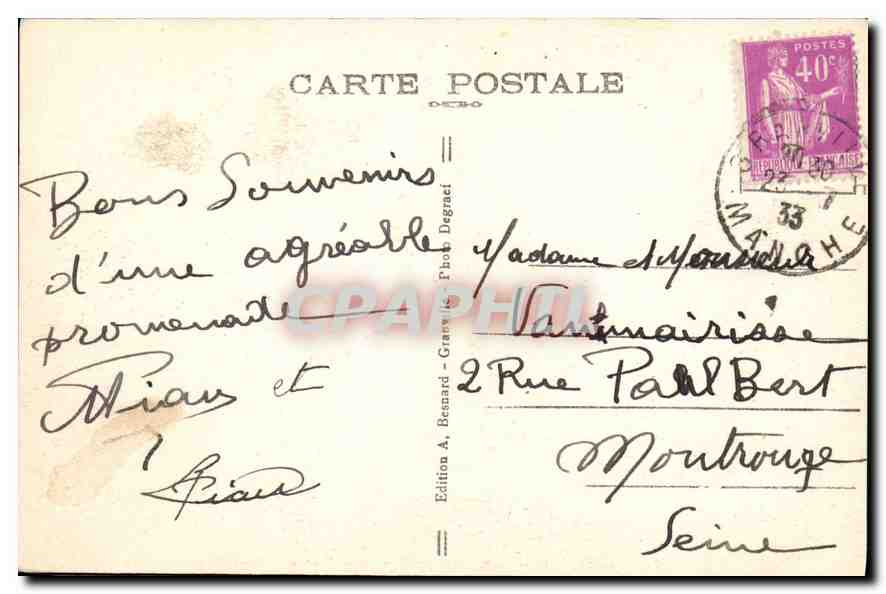 CARTE POSTALE
POSTES
40c
RÉPUBLIQUE FRANÇAISE
23 7
33
MANCHE
Bons Souvenirs
d'une agréable
promenade
et
Edition A, Besnard - Granville - Photo Degraef
Madame et Monsieur
2 Rue Paul Bert
Montrouge
Seine
CPAPHIL